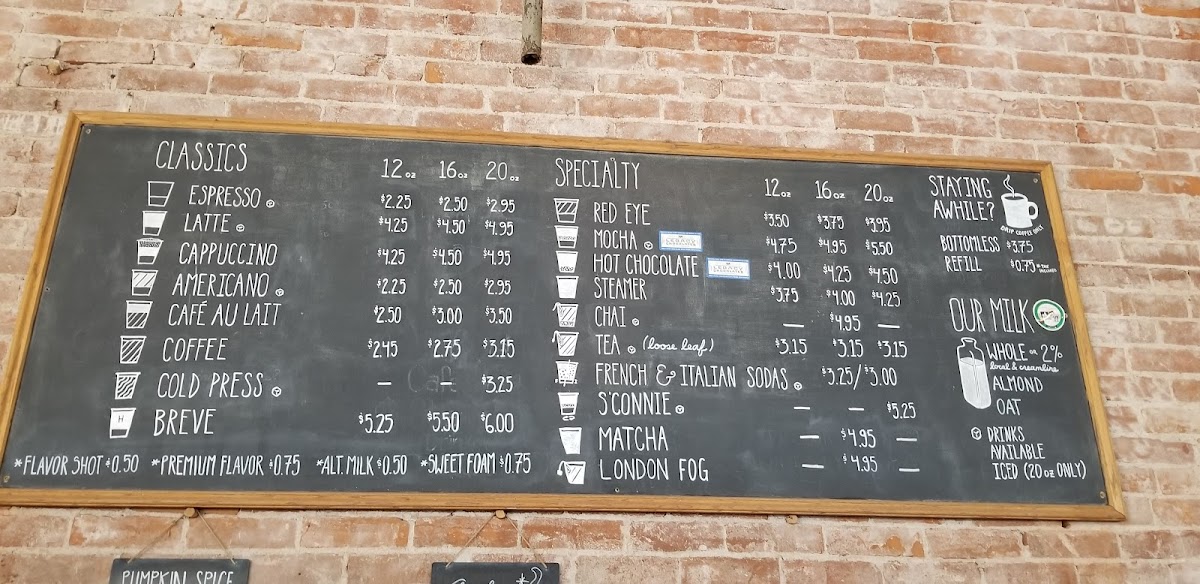 CLASSICS
12 oz 16 oz 20 oz
ESPRESSO $2.25 $2.50 $2.95
LATTE $4.25 $4.50 $4.95
CAPPUCCINO $4.25 $4.50 $4.95
AMERICANO $2.25 $2.50 $2.95
CAFÉ AU LAIT $2.50 $3.00 $3.50
COFFEE $2.45 $2.75 $3.15
COLD PRESS — — $3.25
H BREVE $5.25 $5.50 $6.00
*FLAVOR SHOT $0.50 *PREMIUM FLAVOR $0.75 *ALT. MILK $0.50 *SWEET FOAM $0.75
SPECIALTY
12 oz 16 oz 20 oz
RED EYE $3.50 $3.75 $3.95
MOCHA $4.75 $4.95 $5.50
HOT CHOCOLATE $4.00 $4.25 $4.50
STEAMER $3.75 $4.00 $4.25
CHAI — $4.95 —
TEA (loose leaf) $3.15 $3.15 $3.15
FRENCH & ITALIAN SODAS $3.25/$3.00
S'CONNIE — — $5.25
MATCHA — $4.95 —
LONDON FOG — $4.95 —
STAYING
AWHILE?
DRIP COFFEE ONLY
BOTTOMLESS $3.75
REFILL $0.75
OUR MILK
WHOLE OR 2%
local & creamline
ALMOND
OAT
DRINKS
AVAILABLE
ICED (20 oz ONLY)
PUMPKIN SPICE